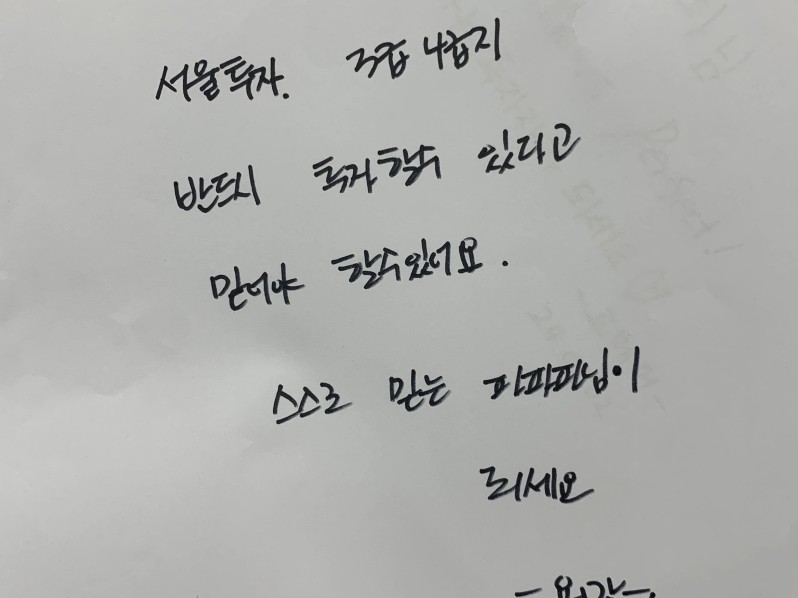 서울투자. 3급 4급지
반드시 투자할수 있다고
믿어야 할수있어요.
스스로 믿는 파파파님이
되세요